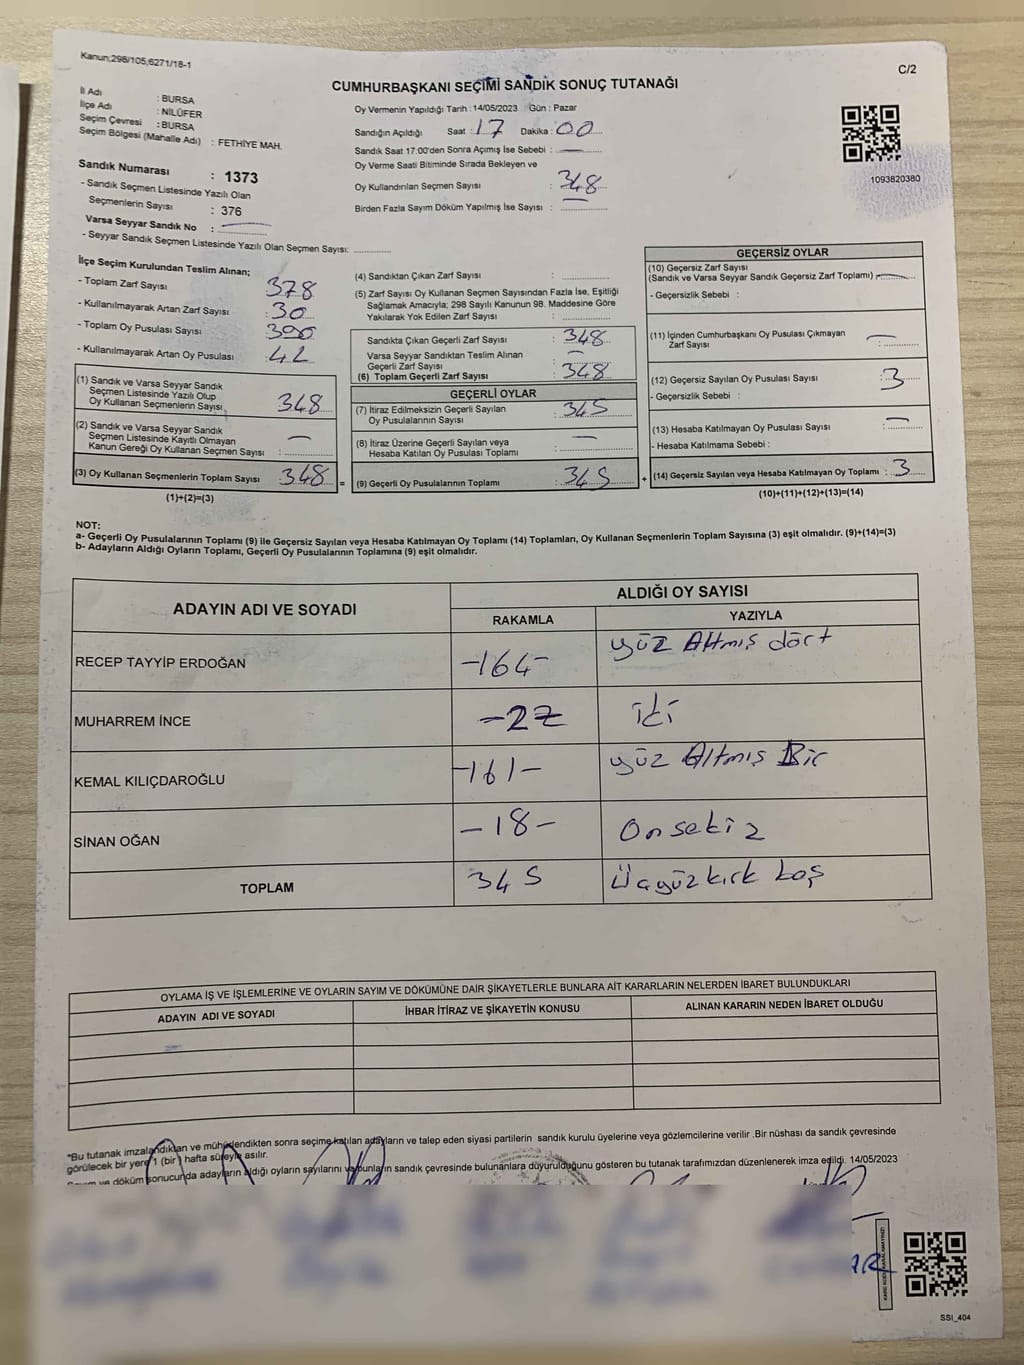 Kanun;298/105,6271/18-1
C/2
CUMHURBAŞKANI SEÇİMİ SANDIK SONUÇ TUTANAĞI
İl Adı : BURSA
İlçe Adı : NİLÜFER
Seçim Çevresi : BURSA
Seçim Bölgesi (Mahalle Adı) : FETHİYE MAH.
Sandık Numarası : 1373
- Sandık Seçmen Listesinde Yazılı Olan
Seçmenlerin Sayısı : 376
Varsa Seyyar Sandık No :
- Seyyar Sandık Seçmen Listesinde Yazılı Olan Seçmen Sayısı:
Oy Vermenin Yapıldığı Tarih : 14/05/2023 Gün : Pazar
Sandığın Açıldığı Saat : 17 Dakika : 00
Sandık Saat 17:00'den Sonra Açımış İse Sebebi :
Oy Verme Saati Bitiminde Sırada Bekleyen ve
Oy Kullandırılan Seçmen Sayısı : 348
Birden Fazla Sayım Döküm Yapılmış İse Sayısı :
1093820380
İlçe Seçim Kurulundan Teslim Alınan;
- Toplam Zarf Sayısı : 378
- Kullanılmayarak Artan Zarf Sayısı : 30
- Toplam Oy Pusulası Sayısı : 390
- Kullanılmayarak Artan Oy Pusulası : 42
(1) Sandık ve Varsa Seyyar Sandık
Seçmen Listesinde Yazılı Olup
Oy Kullanan Seçmenlerin Sayısı 348
(2) Sandık ve Varsa Seyyar Sandık
Seçmen Listesinde Kayıtlı Olmayan
Kanun Gereği Oy Kullanan Seçmen Sayısı : —
(3) Oy Kullanan Seçmenlerin Toplam Sayısı 348 =
(1)+(2)=(3)
(4) Sandıktan Çıkan Zarf Sayısı :
(5) Zarf Sayısı Oy Kullanan Seçmen Sayısından Fazla İse, Eşitliği
Sağlamak Amacıyla; 298 Sayılı Kanunun 98. Maddesine Göre
Yakılarak Yok Edilen Zarf Sayısı :
Sandıkta Çıkan Geçerli Zarf Sayısı : 348
Varsa Seyyar Sandıktan Teslim Alınan
Geçerli Zarf Sayısı : —
(6) Toplam Geçerli Zarf Sayısı : 348
GEÇERLİ OYLAR
(7) İtiraz Edilmeksizin Geçerli Sayılan
Oy Pusulalarının Sayısı : 345
(8) İtiraz Üzerine Geçerli Sayılan veya
Hesaba Katılan Oy Pusulası Toplamı : —
(9) Geçerli Oy Pusulalarının Toplamı : 345 +
GEÇERSİZ OYLAR
(10) Geçersiz Zarf Sayısı
(Sandık ve Varsa Seyyar Sandık Geçersiz Zarf Toplamı) : —
- Geçersizlik Sebebi :
(11) İçinden Cumhurbaşkanı Oy Pusulası Çıkmayan
Zarf Sayısı : —
(12) Geçersiz Sayılan Oy Pusulası Sayısı : 3
- Geçersizlik Sebebi :
(13) Hesaba Katılmayan Oy Pusulası Sayısı : —
- Hesaba Katılmama Sebebi :
(14) Geçersiz Sayılan veya Hesaba Katılmayan Oy Toplamı : 3
(10)+(11)+(12)+(13)=(14)
NOT:
a- Geçerli Oy Pusulalarının Toplamı (9) ile Geçersiz Sayılan veya Hesaba Katılmayan Oy Toplamı (14) Toplamları, Oy Kullanan Seçmenlerin Toplam Sayısına (3) eşit olmalıdır. (9)+(14)=(3)
b- Adayların Aldığı Oyların Toplamı, Geçerli Oy Pusulalarının Toplamına (9) eşit olmalıdır.
ADAYIN ADI VE SOYADI
ALDIĞI OY SAYISI
RAKAMLA YAZIYLA
RECEP TAYYİP ERDOĞAN -164- yüz Altmış dört
MUHARREM İNCE -2- iki
KEMAL KILIÇDAROĞLU -161- yüz Altmış Bir
SİNAN OĞAN -18- On sekiz
TOPLAM 345 Üçyüzkırk beş
OYLAMA İŞ VE İŞLEMLERİNE VE OYLARIN SAYIM VE DÖKÜMÜNE DAİR ŞİKAYETLERLE BUNLARA AİT KARARLARIN NELERDEN İBARET BULUNDUKLARI
ADAYIN ADI VE SOYADI İHBAR İTİRAZ VE ŞİKAYETİN KONUSU ALINAN KARARIN NEDEN İBARET OLDUĞU
*Bu tutanak imzalandıktan ve mühürlendikten sonra seçime katılan adayların ve talep eden siyasi partilerin sandık kurulu üyelerine veya gözlemcilerine verilir .Bir nüshası da sandık çevresinde
görülecek bir yere 1 (bir) hafta süreyle asılır.
Sayım ve döküm sonucunda adayların aldığı oyların sayılarını ve bunların sandık çevresinde bulunanlara duyurulduğunu gösteren bu tutanak tarafımızdan düzenlenerek imza edildi. 14/05/2023
SSI_404